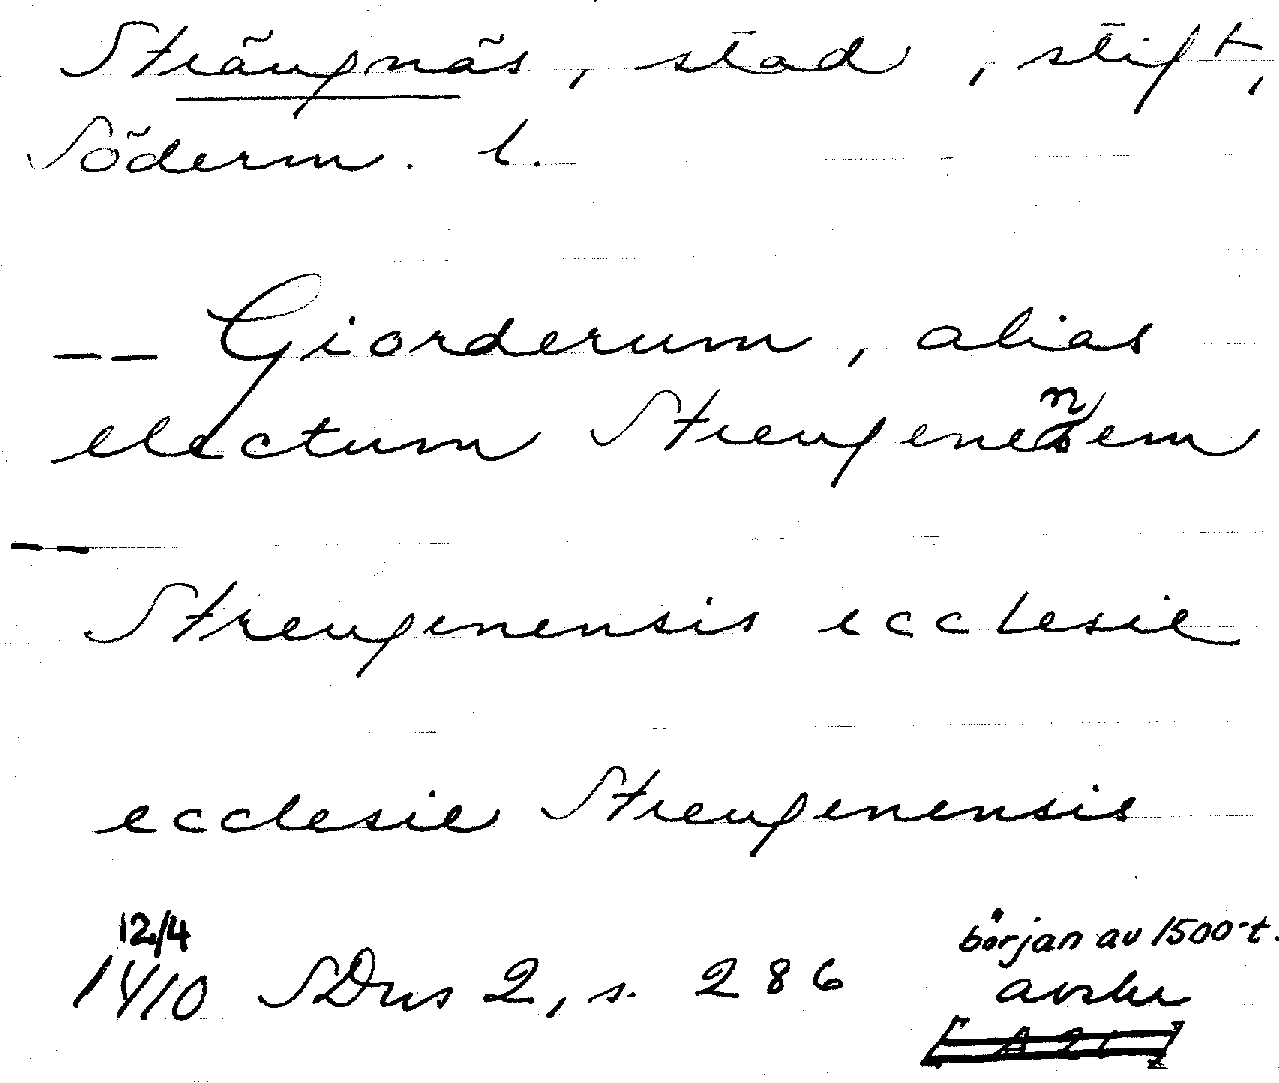 Strängnäs, stad, stift,
Söderm. l.
-- Giorderum, alias
electum Strengenensem
--
Strengenensis ecclesie
ecclesie Strengenensis
12/4
1410 SDns 2, s. 286
början av 1500-t.
avskr